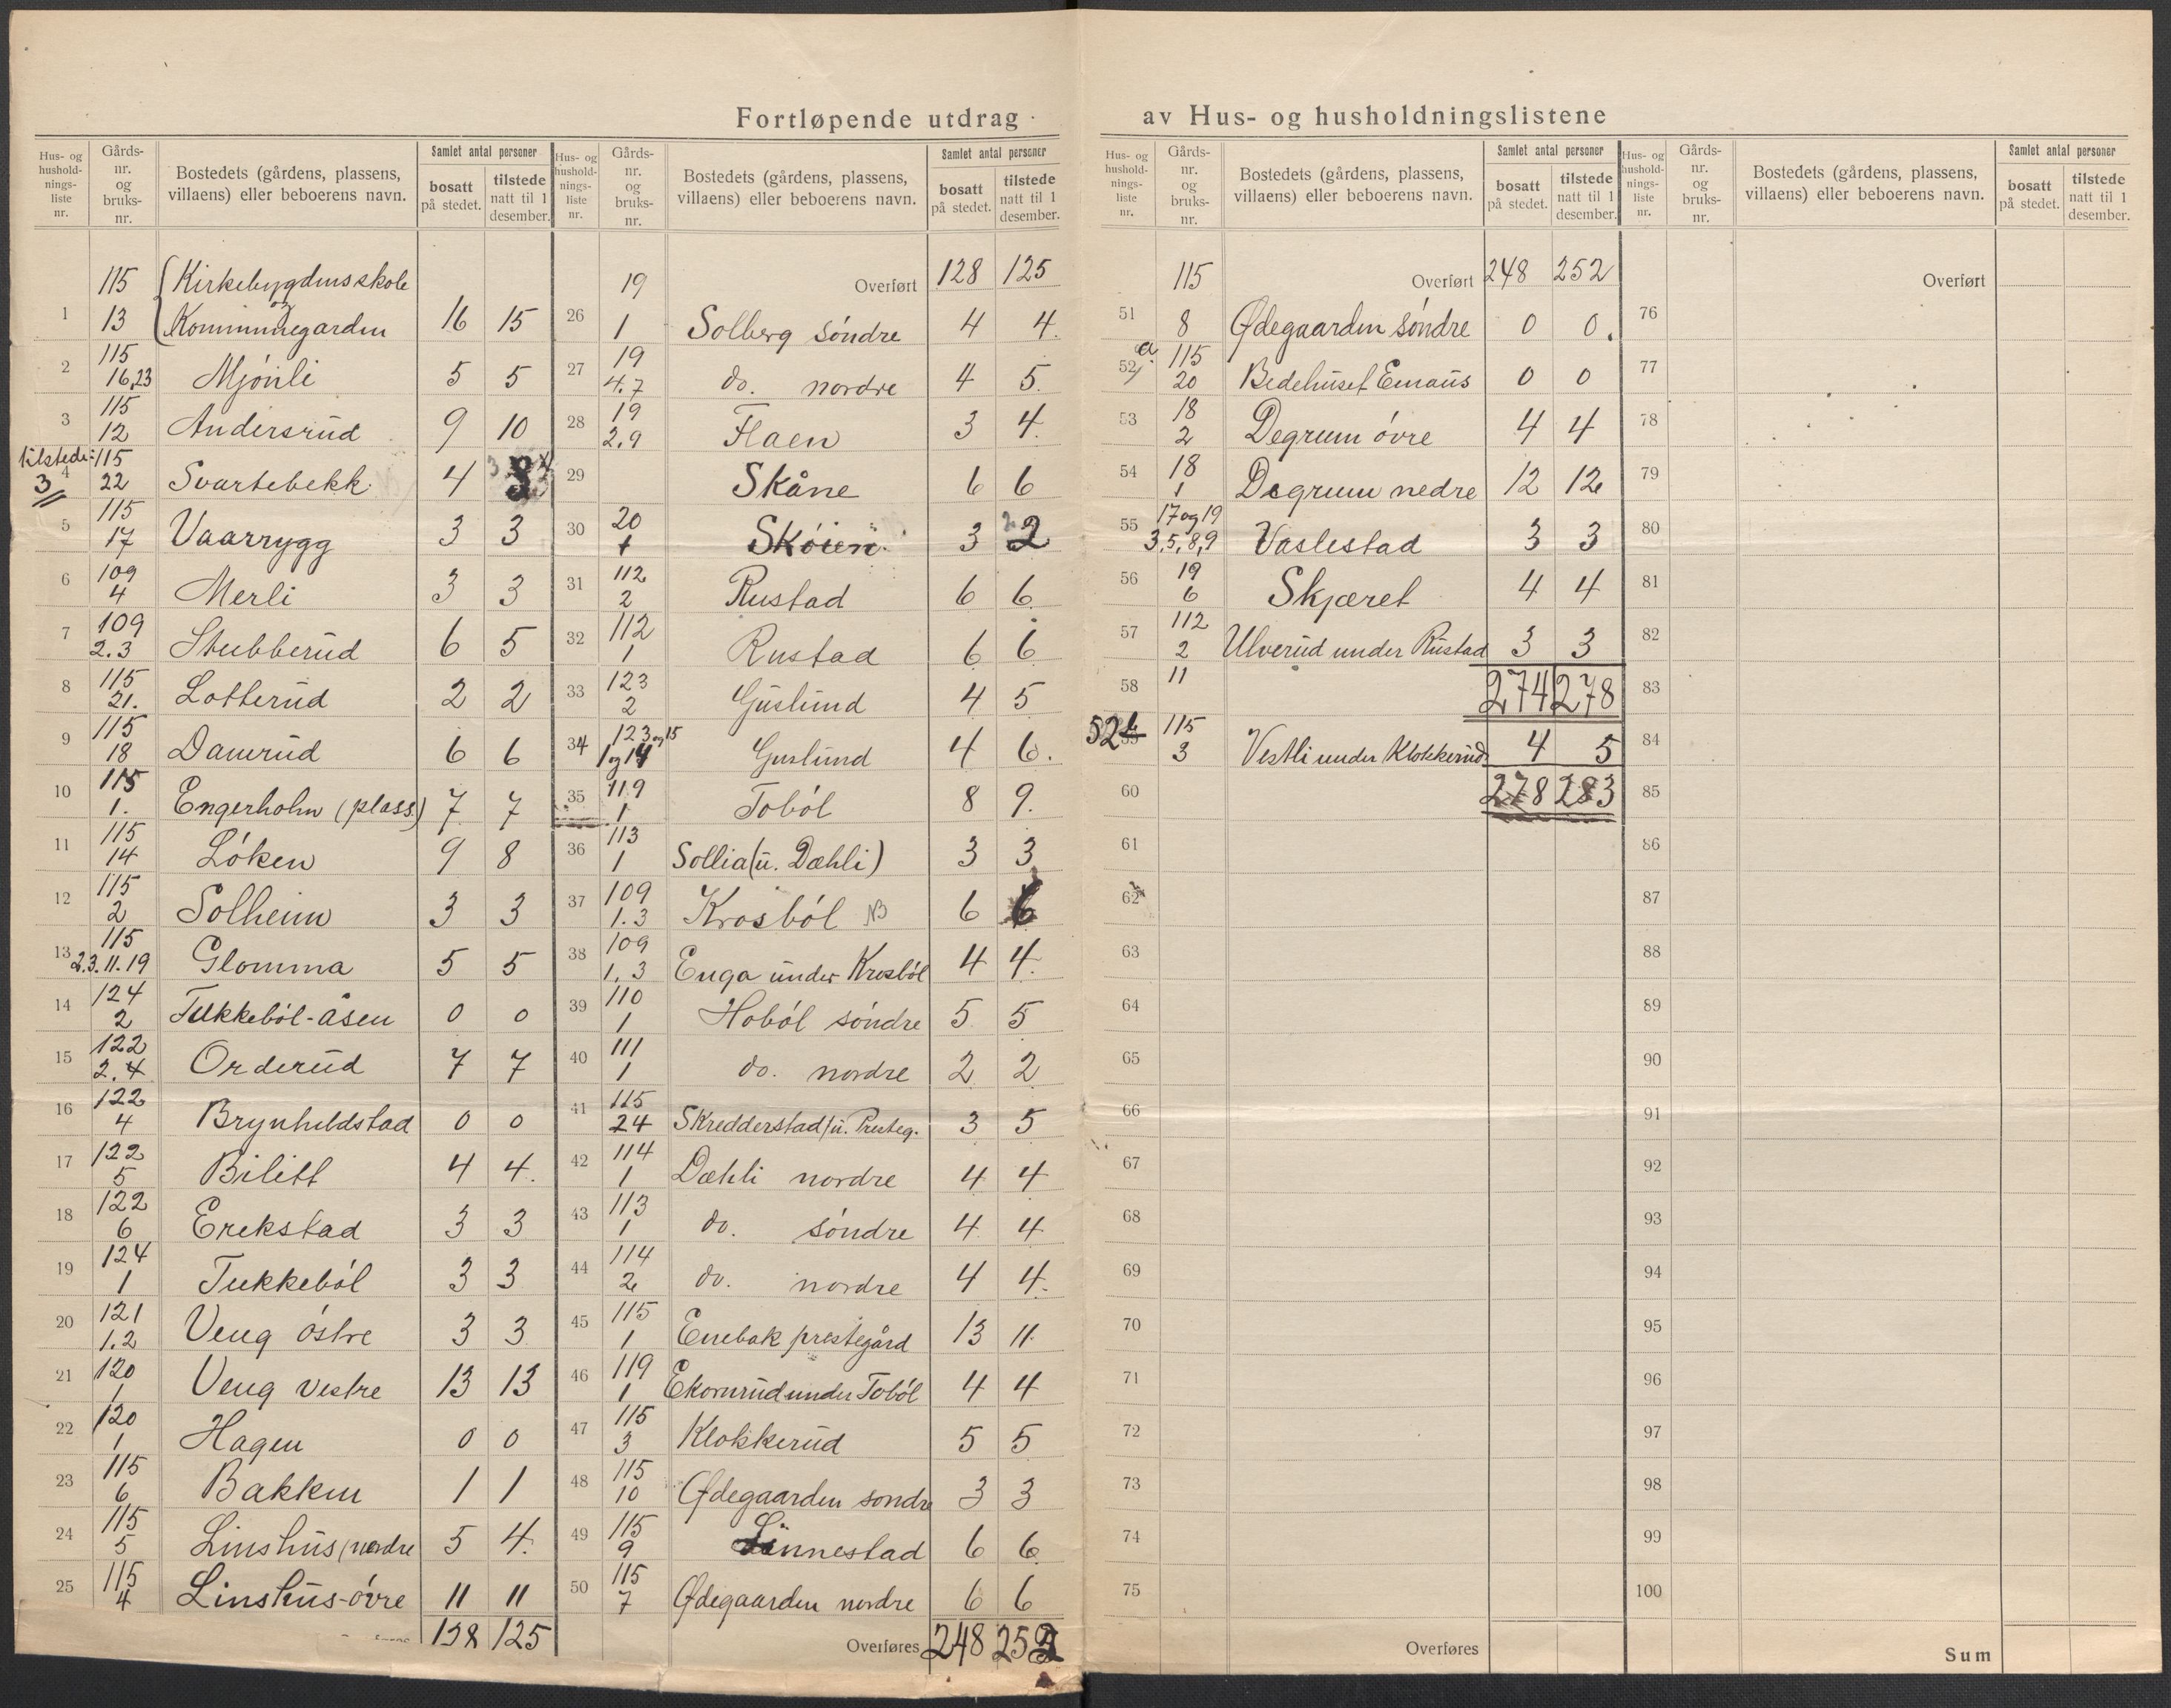 Fortløpende utdrag av Hus- og husholdningslistene
Hus- og hushold-nings-liste nr. | Gårds-nr. og bruks-nr. | Bostedets (gårdens, plassens, villaens) eller beboerens navn. | Samlet antal personer | bosatt på stedet. | tilstede natt til 1 desember.
1 | 115 13 | Kirkebygdens skole og Kommunegarden | 16 | 15
2 | 115 16,23 | Mjønli | 5 | 5
3 | 115 12 | Andersrud | 9 | 10
tilstede: 3
4 | 115 22 | Svartebekk | 4 | 3
5 | 115 17 | Vaarrygg | 3 | 3
6 | 109 4 | Merli | 3 | 3
7 | 109 2.3 | Stubberud | 6 | 5
8 | 115 21. | Lotterud | 2 | 2
9 | 115 18 | Damrud | 6 | 6
10 | 115 1. | Engerholm (plass) | 7 | 7
11 | 115 14 | Løken | 9 | 8
12 | 115 2 | Solheim | 3 | 3
13 | 115 2.3.11.19 | Glomma | 5 | 5
14 | 124 2 | Tukkebøl-åsen | 0 | 0
15 | 122 2.4 | Orderud | 7 | 7
16 | 122 4 | Brynhildstad | 0 | 0
17 | 122 5 | Bilitt | 4 | 4.
18 | 122 6 | Erekstad | 3 | 3
19 | 124 1 | Tukkebøl | 3 | 3
20 | 121 1.2 | Veng østre | 3 | 3
21 | 120 1 | Veng vestre | 13 | 13
22 | 120 1 | Hagen | 0 | 0
23 | 115 6 | Bakken | 1 | 1
24 | 115 5 | Linshus (nordre | 5 | 4.
25 | 115 4 | Linshus-øvre | 11 | 11
128 | 125
Hus- og hushold-nings-liste nr. | Gårds-nr. og bruks-nr. | Bostedets (gårdens, plassens, villaens) eller beboerens navn. | Samlet antal personer | bosatt på stedet. | tilstede natt til 1 desember.
Overført | 128 | 125
26 | 19 1 | Solberg søndre | 4 | 4.
27 | 19 4.7 | do. nordre | 4 | 5.
28 | 19 2,9 | Flaen | 3 | 4.
29 | Skåne | 6 | 6
30 | 20 1 | Skøien | 3 | 2
31 | 112 2 | Rustad | 6 | 6.
32 | 112 1 | Rustad | 6 | 6
33 | 123 2 | Guslund | 4 | 5
34 | 123 og 15 1 og 14 | Guslund | 4 | 6.
35 | 119 1 | Tobøl | 8 | 9.
36 | 113 1 | Sollia (u. Dæhli) | 3 | 3
37 | 109 1.3 | Krosbøl NB | 6 | 6
38 | 109 1, 3 | Enga under Krosbøl | 4 | 4.
39 | 110 1 | Hobøl søndre | 5 | 5
40 | 111 1 | do. nordre | 2 | 2
41 | 115 24 | Skredderstad/u. Presteg. | 3 | 5
42 | 114 1 | Dæhli nordre | 4 | 4
43 | 113 1 | do. søndre | 4 | 4
44 | 114 2 | do. nordre | 4 | 4.
45 | 115 1 | Enebak prestegård | 13 | 11
46 | 119 1 | Ekornrud under Tobøl | 4 | 4
47 | 115 3 | Klokkerud | 5 | 5
48 | 115 10 | Ødegaarden søndre | 3 | 3
49 | 115 9 | Linnestad | 6 | 6
50 | 115 7 | Ødegaarden nordre | 6 | 6
Overføres | 248 | 252
Hus- og hushold-nings-liste nr. | Gårds-nr. og bruks-nr. | Bostedets (gårdens, plassens, villaens) eller beboerens navn. | Samlet antal personer | bosatt på stedet. | tilstede natt til 1 desember.
Overført | 248 | 252
51 | 115 8 | Ødegaarden søndre | 0 | 0.
52 a | 115 20 | Bedehuset Emaus | 0 | 0
53 | 18 2 | Degrum øvre | 4 | 4
54 | 18 1 | Degrum nedre | 12 | 12
55 | 17 og 19 3,5,8,9 | Vaslestad | 3 | 3
56 | 19 6 | Skjæret | 4 | 4
57 | 112 2 | Ulverud under Rustad | 3 | 3
58 | 11 | 274 | 278
52 b | 115 3 | Vestli under Klokkerud | 4 | 5
60 | 278 | 283
61
62
63
64
65
66
67
68
69
70
71
72
73
74
75
Overføres
Hus- og hushold-nings-liste nr. | Gårds-nr. og bruks-nr. | Bostedets (gårdens, plassens, villaens) eller beboerens navn. | Samlet antal personer | bosatt på stedet. | tilstede natt til 1 desember.
Overført
76
77
78
79
80
81
82
83
84
85
86
87
88
89
90
91
92
93
94
95
96
97
98
99
100
Sum